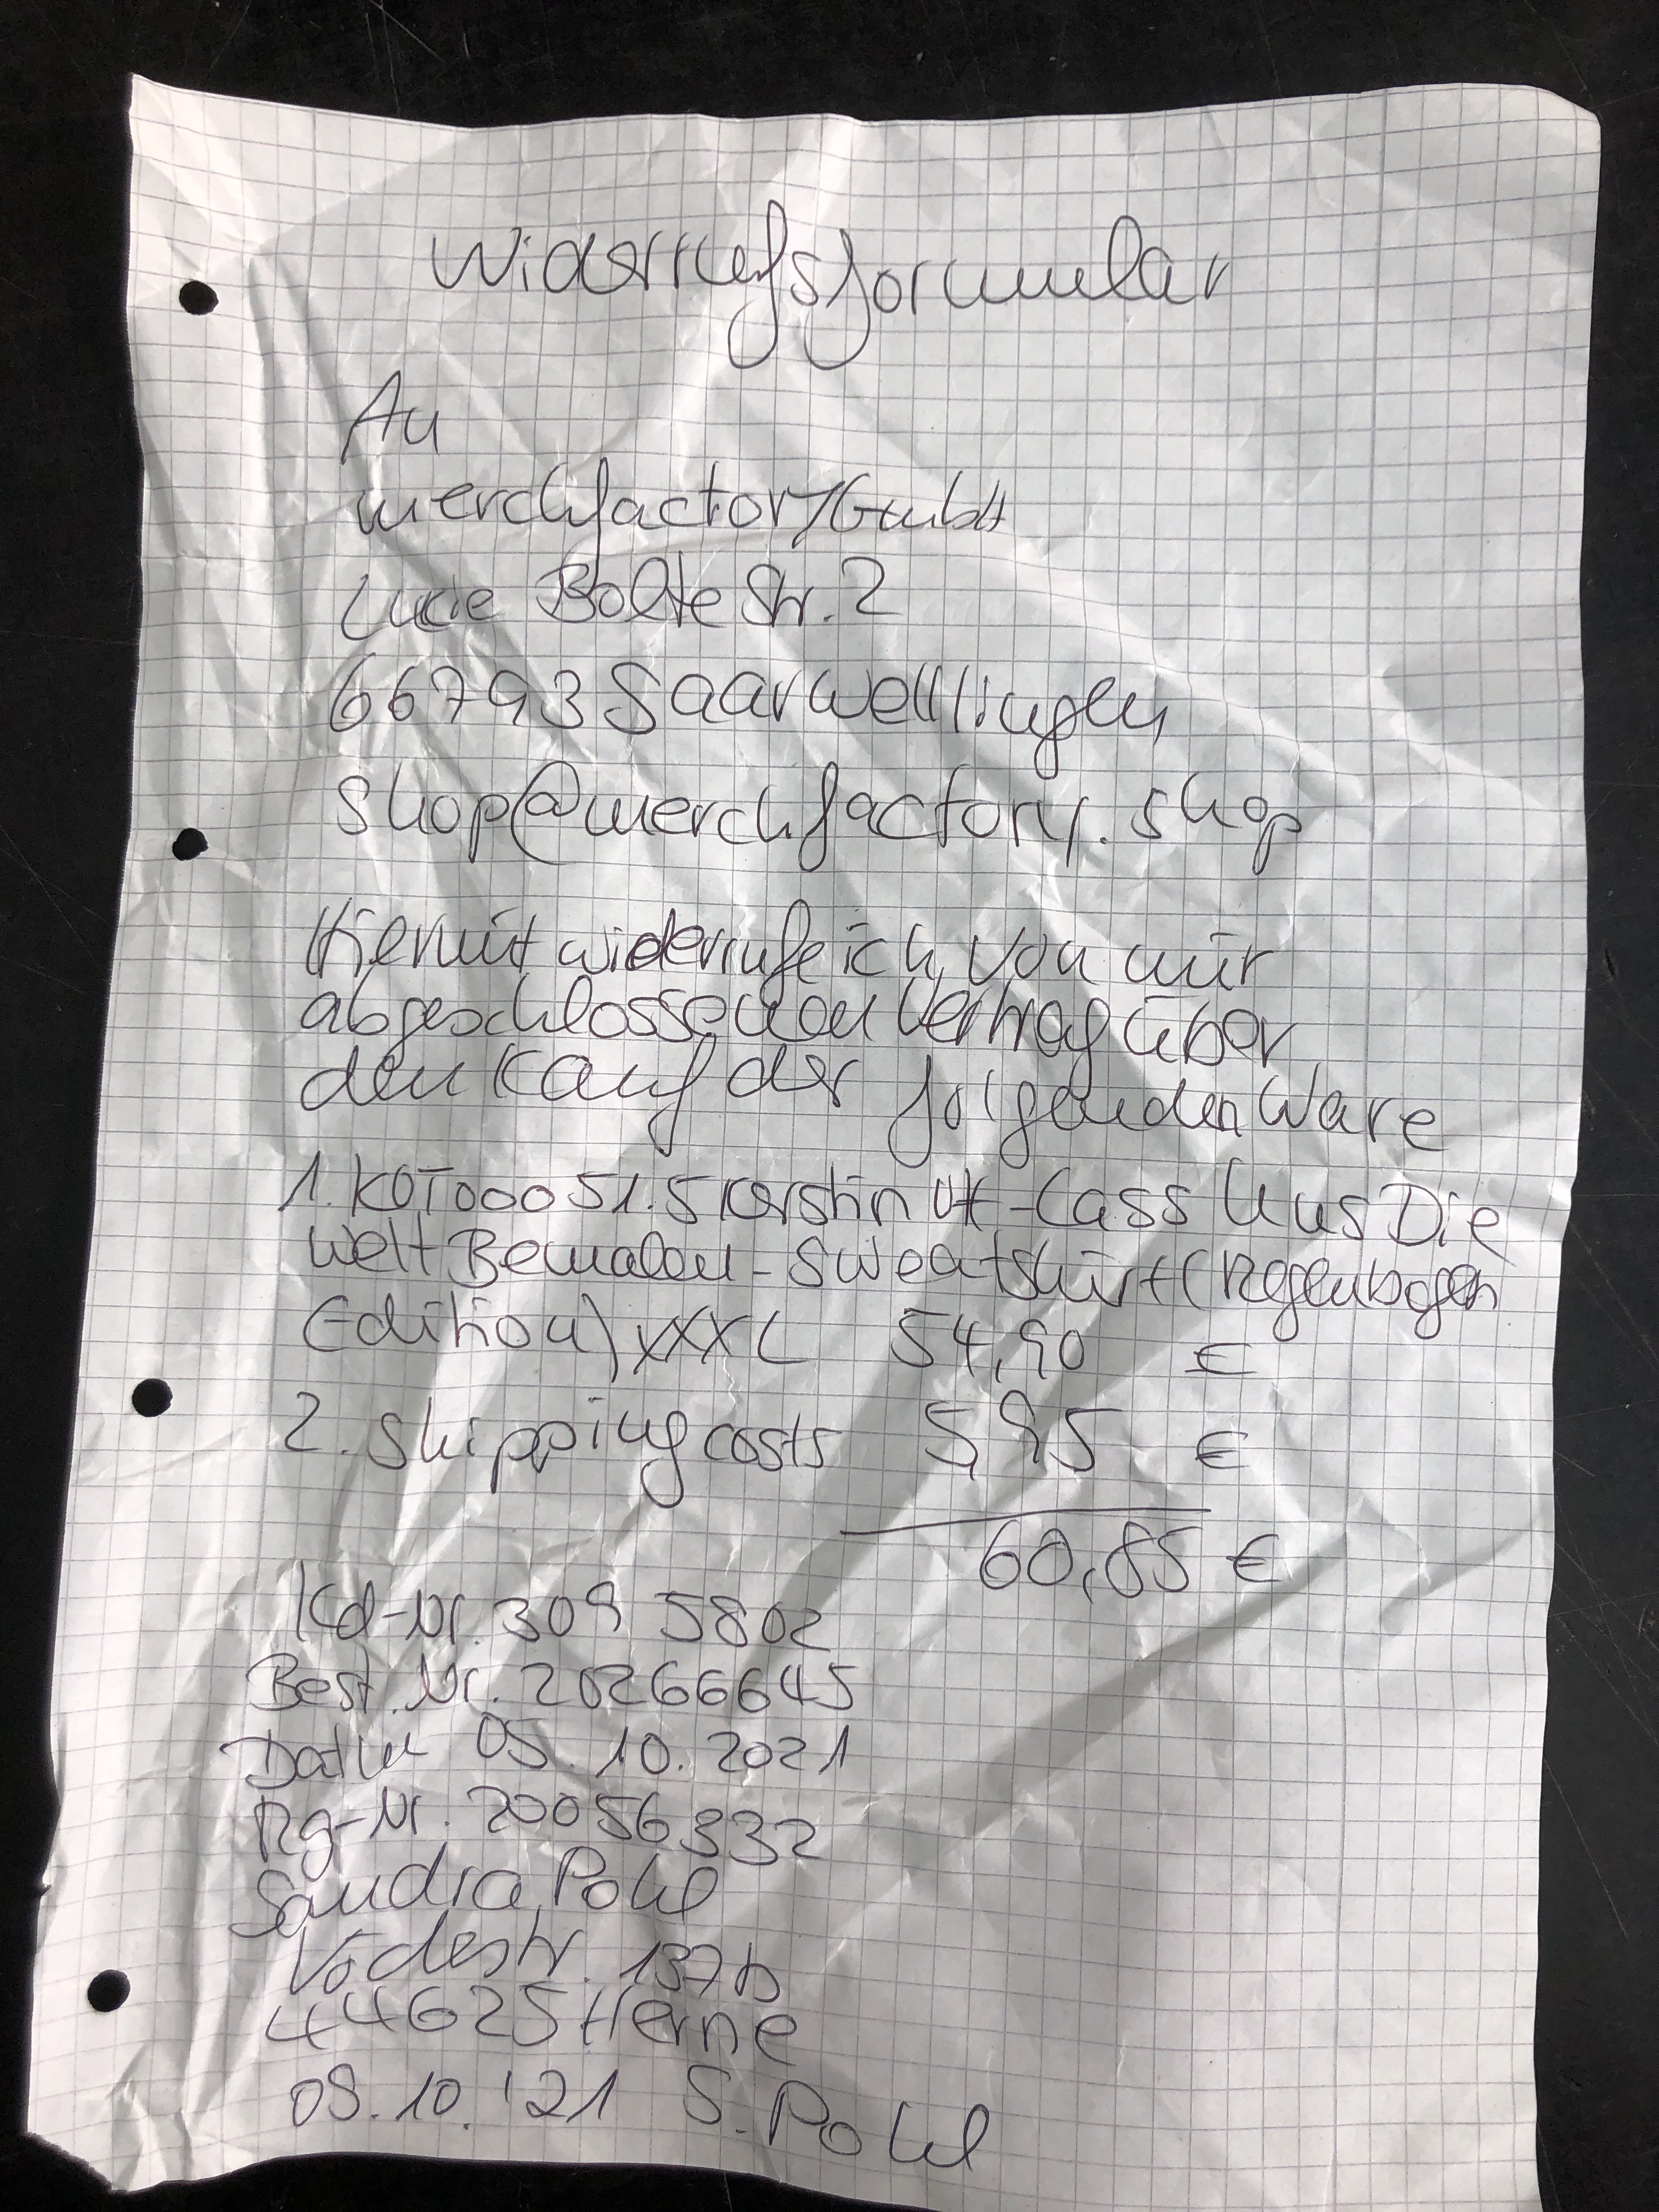 Widerrufsformular
An
merchfactory GmbH
Lucie Bolte Str. 2
66793 Saarwellingen
Shop@merchfactory.shop
Hiermit widerrufe ich, von mir
abgeschlossenen Vertrag über
den Kauf der folgenden Ware
1. KOT00051.5 Kerstin Ott - Lass Uns Die
Welt Bemalen - Sweatshirt (Regenbogen
Edition) XXXL 54,90 €
2. Shipping costs 5,95 €
60,85 €
Kd-Nr. 309 5802
Best. Nr. 20266645
Datum 05.10.2021
Rg-Nr. 20056332
Sandra Pohl
Vödestr. 137b
44625 Herne
09.10.'21 S. Pohl